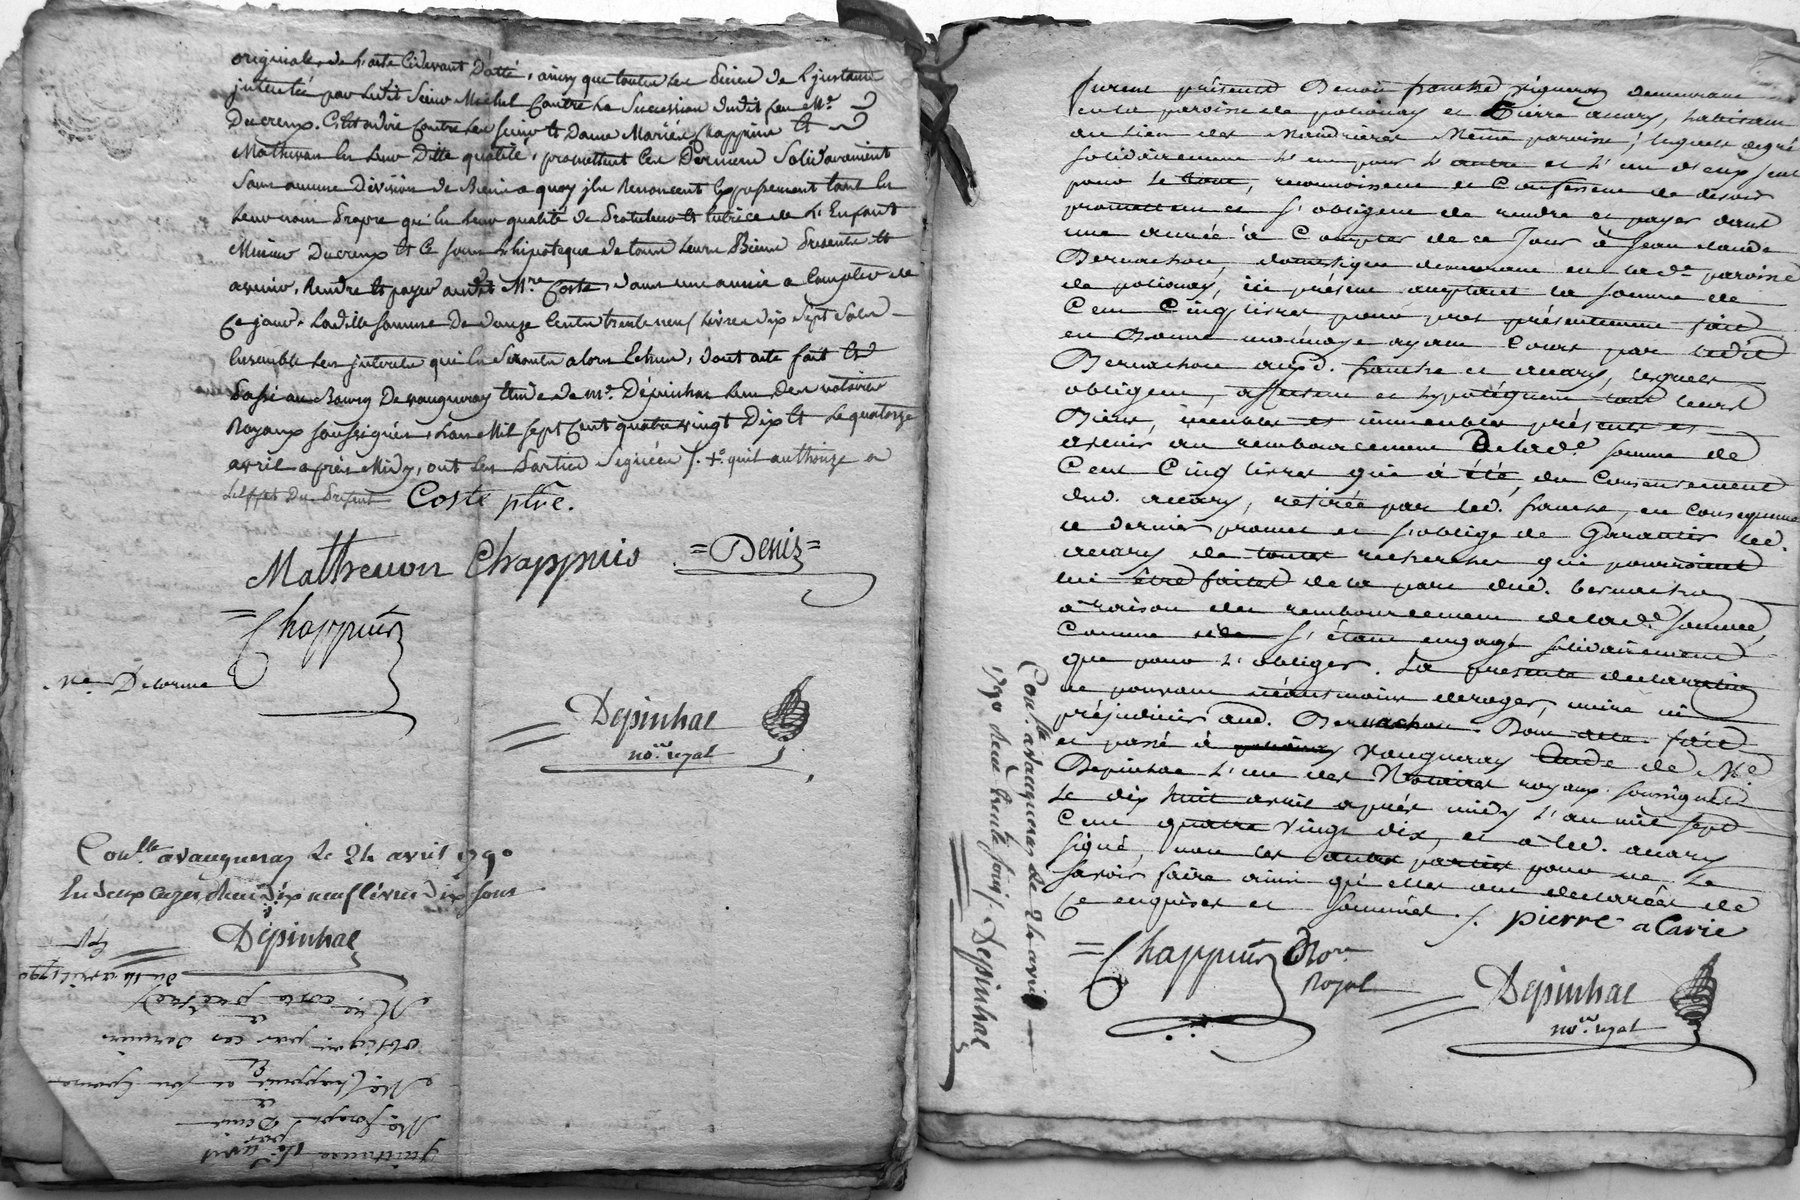 originale de l'acte cidevant Datté, ainsy que toutes les pieces de l'jnstance
jntentée par ledit Sieur Michel contre la Succession dudit feu Mr.
Ducreux. C'est adire contre les Sieur & Dame Mariés Chappuis &
Mathevon en leur ditte qualité, promettent ces Derniers Solidairement
Sans aucune Division de Biens a quoy jls Renoncent Expressement tant en
leur nom Propre qu'en leur qualité de & tutrice de l'Enfant
Mineur Ducreux & ce sous l'hipoteque de tous leurs Biens Presents &
avenir, Rendre & payer audit Mre. Coste, dans une année a Compter de
Ce jour, Ladite Somme De douze Cents trente neuf livres dix Sept Sols
Ensemble les jnterets qui en Seront alors Echus, dont acte fait &
Passé au Bourg De vaugneray Etude de me. Dépinhac l'un des notaires
Royaux soussignés, L'an Mil sept Cent quatre vingt Dix & le quatorze
avril après Midy, ont les Parties Signées /. +. quil authorize a
L'effet Du Présent Coste ptre.
Mathevon Chappuis =Denis=
Chappuis
Me. Delorme
Depinhac
nore. royal
Conlle. a vaugneray Le 24 avril 1790
En deux cazes, Reçu dix neuf livres dix sous
Dépinhac
Quittance
par
Mr. joseph Denis
a
Mr. Chappuis et son épouse
&
obligaon. par ces derniers
a
Mre. coste prêtre
du 14 avril 1790
furent présents Benoit franche vigneron demeurant
en la paroisse de polionay et Pierre acary, habitant
au lieu des même paroisse, lesquels de gré
solidairement l'un pour l'autre et l'un d'eux seul
pour le tout, reconnoissent et Confessent de devoir
promettent et s'obligent de rendre et payer dans
une année à Compter de ce jour à jean claude
Bernachon, domestique demeurant en lade. paroisse
de polionay, ici présent acceptant la somme de
Cent Cinq livres pour pret présentement fait
en Bonne monnoye ayant Cours par ledit
Bernachon auxd. franche et acary, lesquels
obligent, affectent et hypotéquent tous leurs
Biens, meubles et immeubles présents et
avenir au remboursement De lade. somme de
Cent Cinq livres qui a été, du Consentement
dud. acary, retirée par led. franche, en consequence
ce dernier promet et s'oblige de Garantir led.
acary de toutes recherches qui pourroient
lui être faites de la part dud. bernachon
à raison du remboursement de lade. somme,
Comme s'étant engagé solidairement
que pour l'obliger. La presente declaration
ne pouvant néantmoins deroger, nuire ni
préjudicier aud. Bernachon. Dont acte. fait
et passé à vaugneray Etude de Me.
Depinhac l'un des Notaires royaux soussignés
le dix huit avril après midy l'an mil sept
Cent quatre vingt dix, et a led. acary
signé, non les autres parties pour ne le
savoir faire ainsi qu'elles ont declarées de
Ce enquises et sommées /. pierre acarie
Chappuis Nore.
Royal
Depinhac
nore. royal
Conlle. a vaugneray Le 24 avril
1790 Reçu trente sous / Depinhac